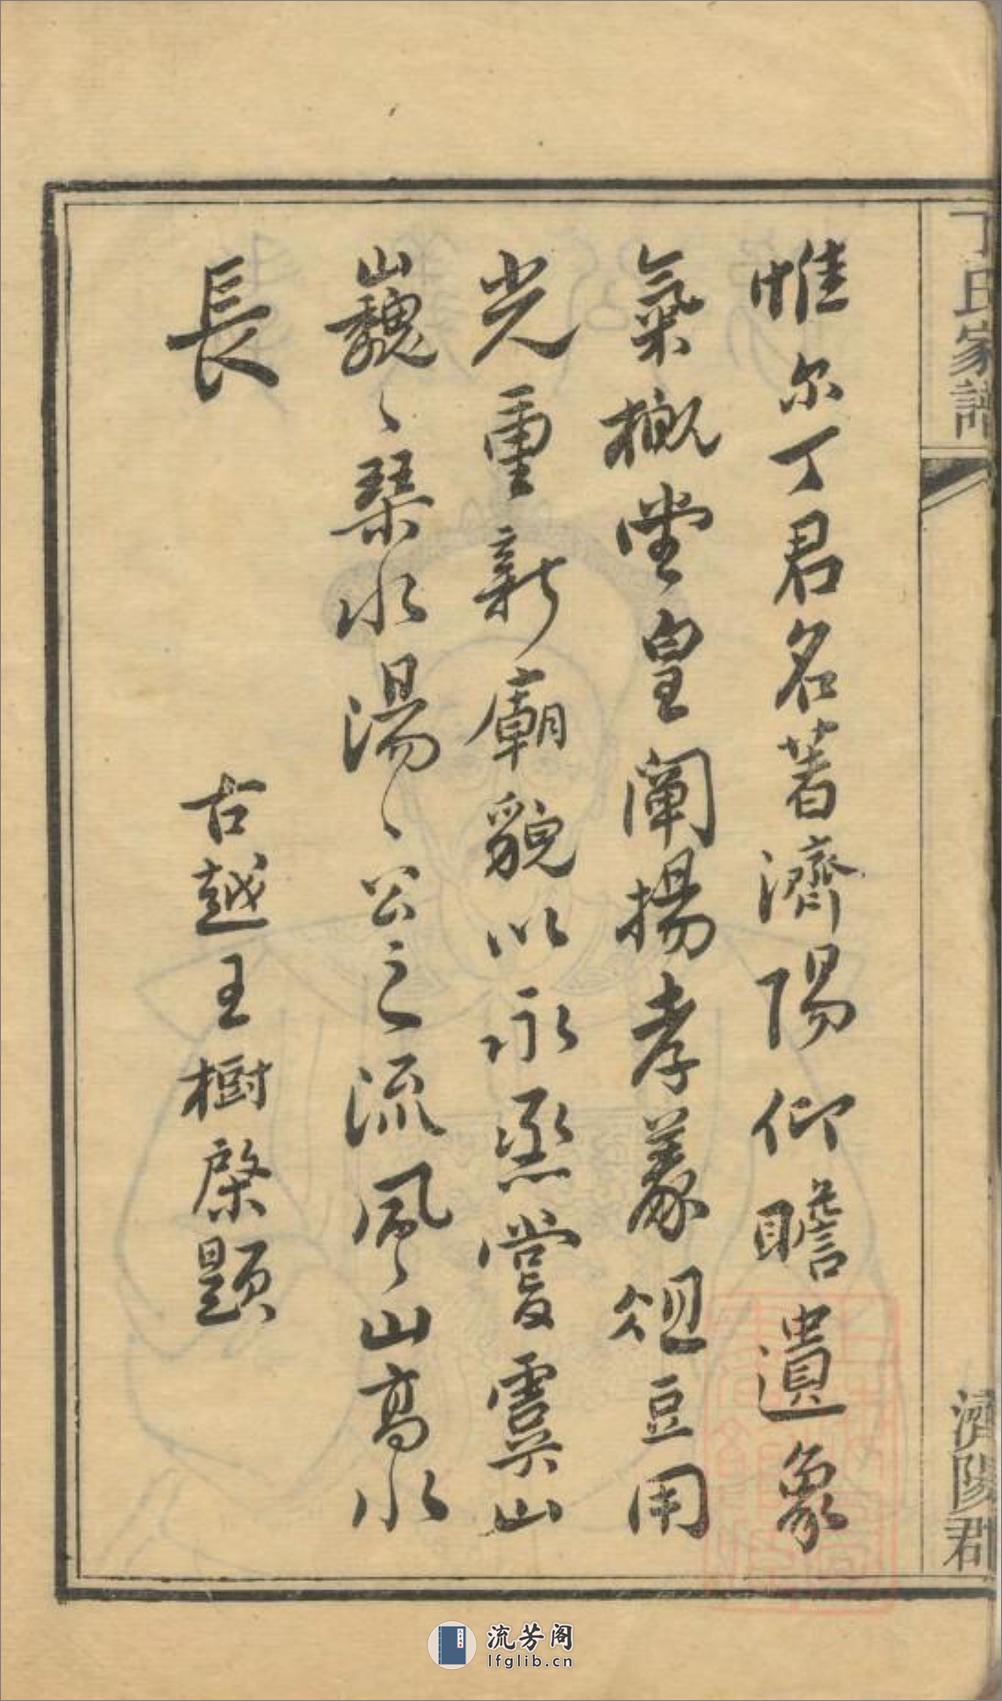 丁氏家譜
濟陽郡
惟尔丁君名著濟陽仰瞻遺象
氣概堂皇闡揚孝義俎豆用
光重新廟貌以永烝嘗虞山
巍〻琴水湯〻公之流風山高水
長
古越王樹棨題
流芳阁
lfglib.cn